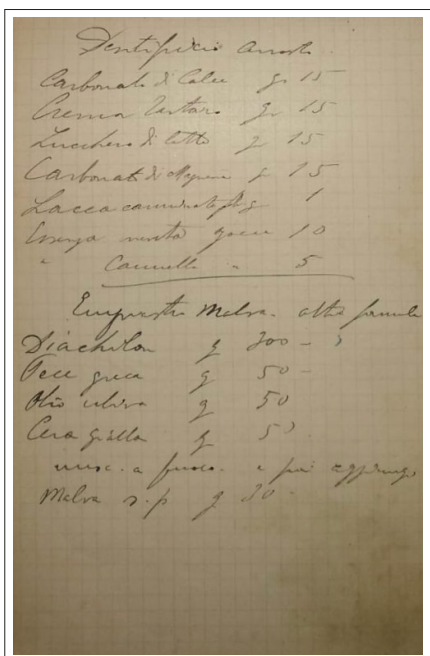 Dentifricio
Carbonato di Calce gr 15
Crema tartaro gr 15
Zucchero di latte g 15
Carbonato di Magnesia g 15
Lacca carminata g 1
Essenza menta gocce 10
" Cannella " 5
Empiastro Malva. altra formula
Diachilon g 200 -
Pece greca g 50 -
Olio uliva g 50
Cera gialla g 50
misc. a fuoco. e poi aggiungo
Malva s.p g 30 -